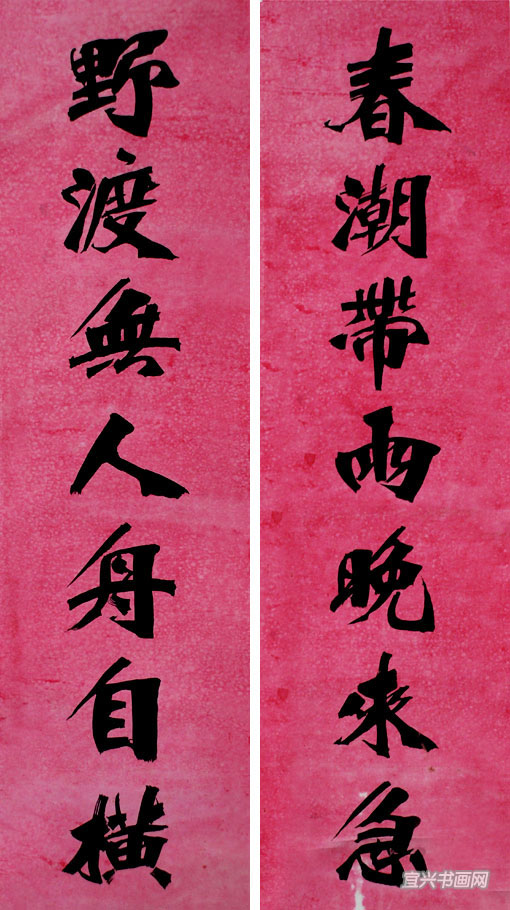 春潮帶雨晚來急
野渡無人舟自橫
宜兴书画网